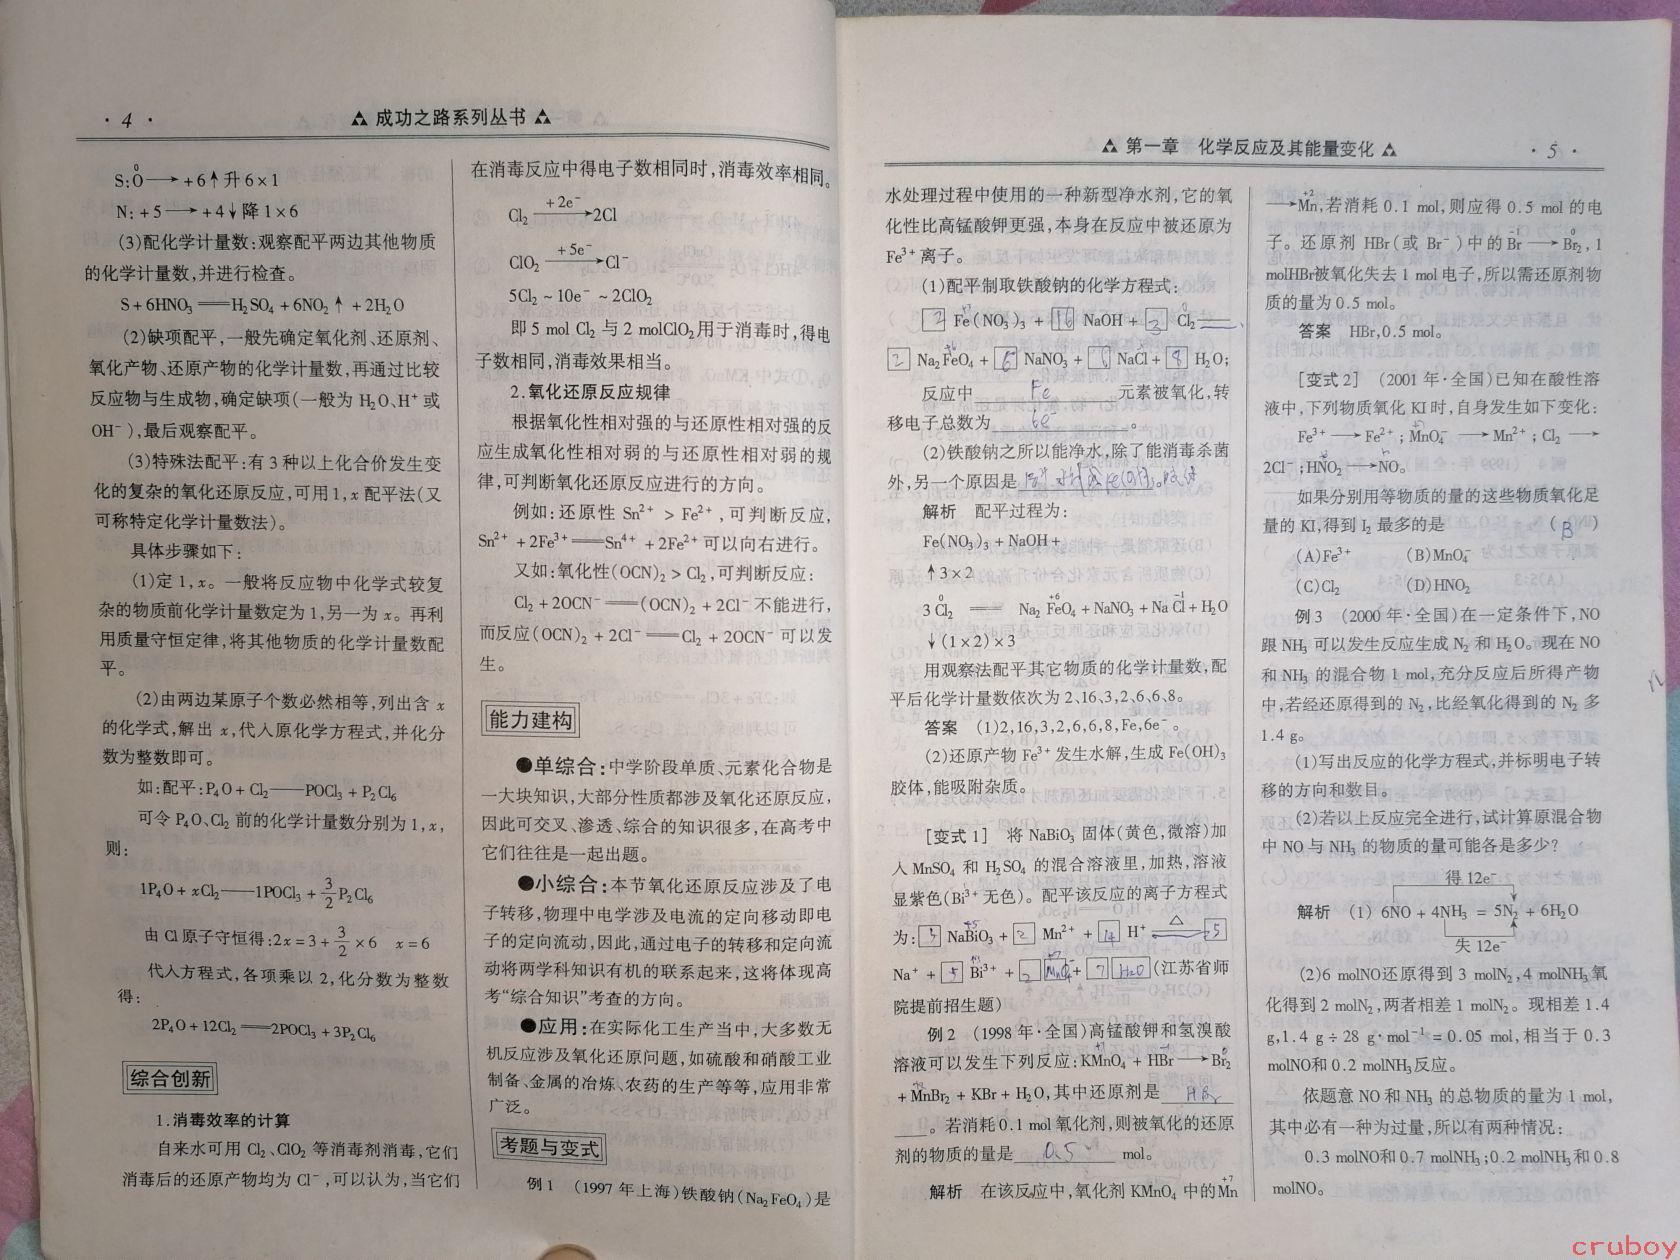 · 4 ·
成功之路系列丛书
S:0→+6↑升6×1
N:+5→+4↓降1×6
(3)配化学计量数:观察配平两边其他物质
的化学计量数,并进行检查。
S+6HNO₃══H₂SO₄+6NO₂↑+2H₂O
(2)缺项配平,一般先确定氧化剂、还原剂、
氧化产物、还原产物的化学计量数,再通过比较
反应物与生成物,确定缺项(一般为H₂O、H⁺或
OH⁻),最后观察配平。
(3)特殊法配平:有3种以上化合价发生变
化的复杂的氧化还原反应,可用1,x配平法(又
可称特定化学计量数法)。
具体步骤如下:
(1)定1,x。一般将反应物中化学式较复
杂的物质前化学计量数定为1,另一为x。再利
用质量守恒定律,将其他物质的化学计量数配
平。
(2)由两边某原子个数必然相等,列出含x
的化学式,解出x,代入原化学方程式,并化分
数为整数即可。
如:配平:P₄O+Cl₂──POCl₃+P₂Cl₆
可令P₄O、Cl₂前的化学计量数分别为1,x,
则:
1P₄O+xCl₂──1POCl₃+3/2P₂Cl₆
由Cl原子守恒得:2x=3+3/2×6 x=6
代入方程式,各项乘以2,化分数为整数
得:
2P₄O+12Cl₂══2POCl₃+3P₂Cl₆
综合创新
1.消毒效率的计算
自来水可用Cl₂、ClO₂等消毒剂消毒,它们
消毒后的还原产物均为Cl⁻,可以认为,当它们
在消毒反应中得电子数相同时,消毒效率相同。
Cl₂ +2e⁻→2Cl
ClO₂ +5e⁻→Cl⁻
5Cl₂~10e⁻~2ClO₂
即5 mol Cl₂与2 molClO₂用于消毒时,得电
子数相同,消毒效果相当。
2.氧化还原反应规律
根据氧化性相对强的与还原性相对强的反
应生成氧化性相对弱的与还原性相对弱的规
律,可判断氧化还原反应进行的方向。
例如:还原性Sn²⁺>Fe²⁺,可判断反应,
Sn²⁺+2Fe³⁺══Sn⁴⁺+2Fe²⁺可以向右进行。
又如:氧化性(OCN)₂>Cl₂,可判断反应:
Cl₂+2OCN⁻══(OCN)₂+2Cl⁻不能进行,
而反应(OCN)₂+2Cl⁻══Cl₂+2OCN⁻可以发
生。
能力建构
●单综合:中学阶段单质、元素化合物是
一大块知识,大部分性质都涉及氧化还原反应,
因此可交叉、渗透、综合的知识很多,在高考中
它们往往是一起出题。
●小综合:本节氧化还原反应涉及了电
子转移,物理中电学涉及电流的定向移动即电
子的定向流动,因此,通过电子的转移和定向流
动将两学科知识有机的联系起来,这将体现高
考“综合知识”考查的方向。
●应用:在实际化工生产当中,大多数无
机反应涉及氧化还原问题,如硫酸和硝酸工业
制备、金属的冶炼、农药的生产等等,应用非常
广泛。
考题与变式
例1 (1997年上海)铁酸钠(Na₂FeO₄)是
第一章 化学反应及其能量变化
· 5 ·
水处理过程中使用的一种新型净水剂,它的氧
化性比高锰酸钾更强,本身在反应中被还原为
Fe³⁺离子。
(1)配平制取铁酸钠的化学方程式:
2 Fe(NO₃)₃+16 NaOH+3 Cl₂══
2 Na₂FeO₄+6 NaNO₃+6 NaCl+8 H₂O;
反应中 Fe 元素被氧化,转
移电子总数为 6e 。
(2)铁酸钠之所以能净水,除了能消毒杀菌
外,另一个原因是
解析 配平过程为:
Fe(NO₃)₃+NaOH+
↑3×2
3Cl₂ ══ Na₂FeO₄+NaNO₃+NaCl+H₂O
↓(1×2)×3
用观察法配平其它物质的化学计量数,配
平后化学计量数依次为2、16、3、2、6、6、8。
答案 (1)2,16,3,2,6,6,8,Fe,6e⁻。
(2)还原产物Fe³⁺发生水解,生成Fe(OH)₃
胶体,能吸附杂质。
[变式1] 将NaBiO₃固体(黄色,微溶)加
入MnSO₄和H₂SO₄的混合溶液里,加热,溶液
显紫色(Bi³⁺无色)。配平该反应的离子方程式
为: NaBiO₃+2 Mn²⁺+14 H⁺ △══5
Na⁺+5 Bi³⁺+2 MnO₄⁻+7 H₂O(江苏省师
院提前招生题)
例2 (1998年·全国)高锰酸钾和氢溴酸
溶液可以发生下列反应:KMnO₄+HBr→Br₂
+MnBr₂+KBr+H₂O,其中还原剂是 HBr
。若消耗0.1 mol氧化剂,则被氧化的还原
剂的物质的量是 0.5 mol。
解析 在该反应中,氧化剂KMnO₄中的Mn(+7)
→Mn(+2),若消耗0.1 mol,则应得0.5 mol的电
子。还原剂HBr(或Br⁻)中的Br→Br₂,1
molHBr被氧化失去1 mol电子,所以需还原剂物
质的量为0.5 mol。
答案 HBr,0.5 mol。
[变式2] (2001年·全国)已知在酸性溶
液中,下列物质氧化KI时,自身发生如下变化:
Fe³⁺→Fe²⁺;MnO₄⁻→Mn²⁺;Cl₂→
2Cl⁻;HNO₂→NO。
如果分别用等物质的量的这些物质氧化足
量的KI,得到I₂最多的是 (B)
(A)Fe³⁺ (B)MnO₄⁻
(C)Cl₂ (D)HNO₂
例3 (2000年·全国)在一定条件下,NO
跟NH₃可以发生反应生成N₂和H₂O。现在NO
和NH₃的混合物1 mol,充分反应后所得产物
中,若经还原得到的N₂,比经氧化得到的N₂多
1.4 g。
(1)写出反应的化学方程式,并标明电子转
移的方向和数目。
(2)若以上反应完全进行,试计算原混合物
中NO与NH₃的物质的量可能各是多少?
得12e⁻
解析 (1) 6NO+4NH₃=5N₂+6H₂O
失12e⁻
(2)6 molNO还原得到3 molN₂,4 molNH₃氧
化得到2 molN₂,两者相差1 molN₂。现相差1.4
g,1.4 g÷28 g·mol⁻¹=0.05 mol,相当于0.3
molNO和0.2 molNH₃反应。
依题意NO和NH₃的总物质的量为1 mol,
其中必有一种为过量,所以有两种情况:
0.3 molNO和0.7 molNH₃;0.2 molNH₃和0.8
molNO。
cruboy